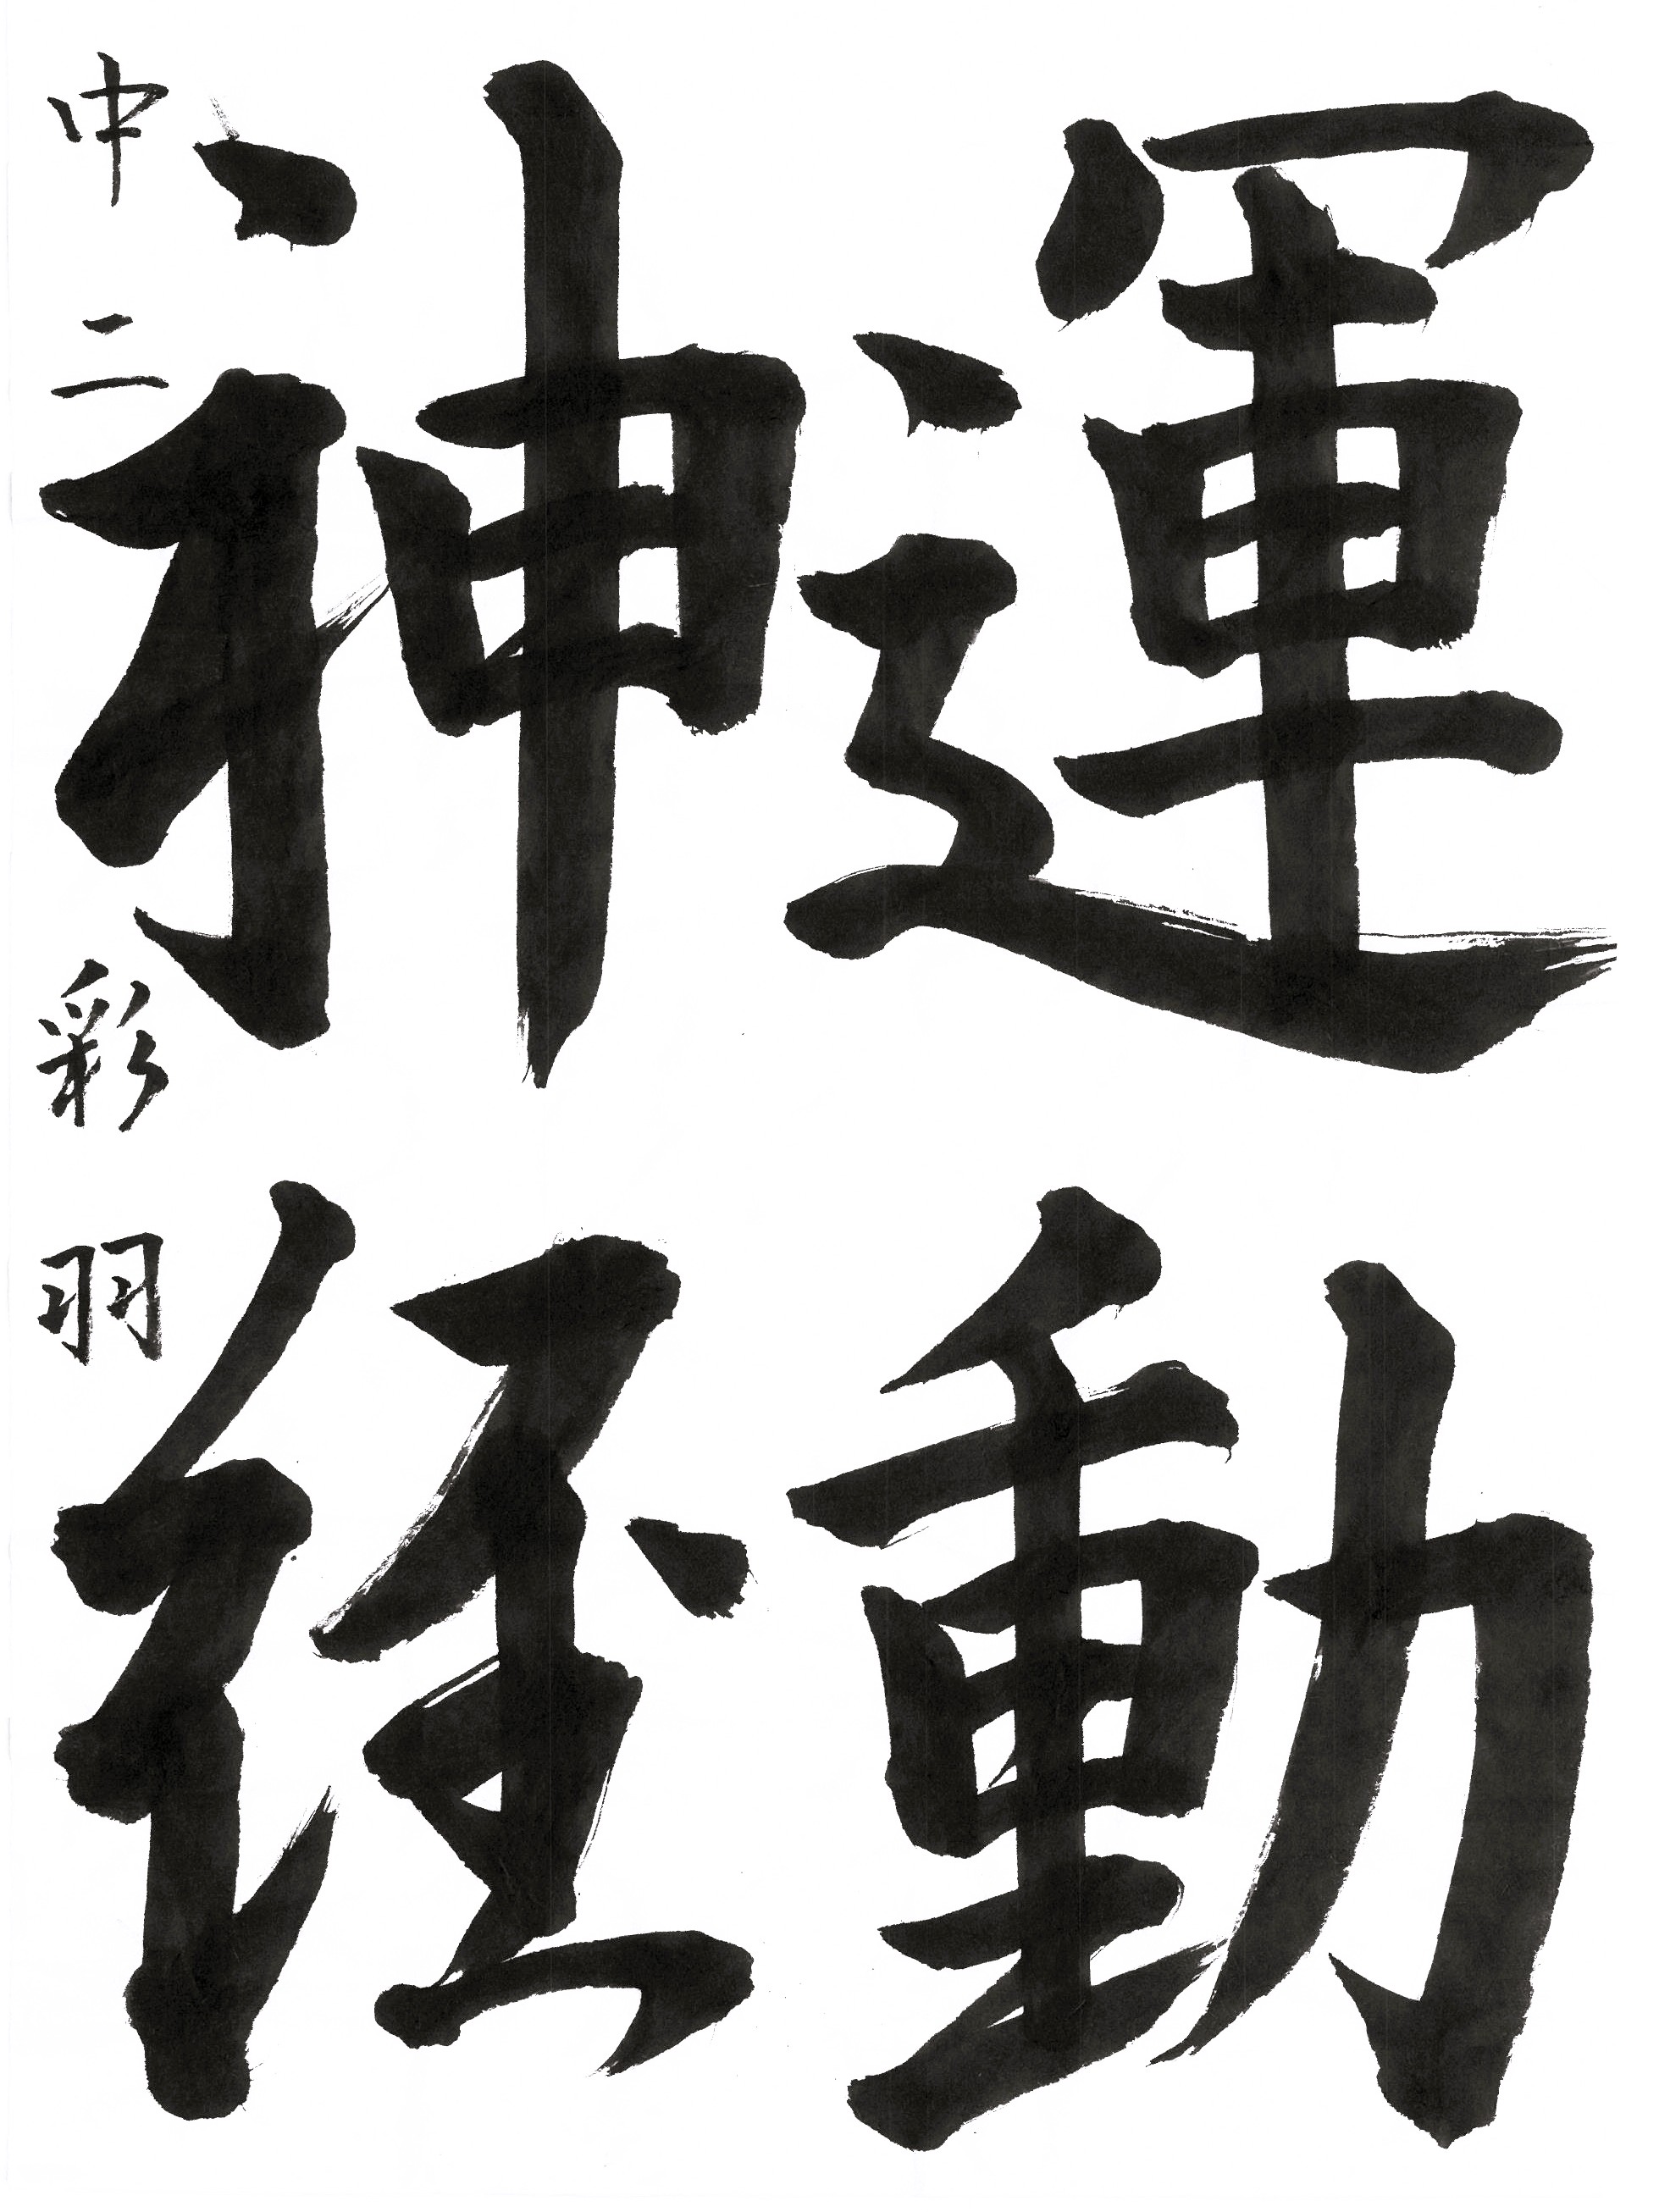 運動
神経
中二 彩羽